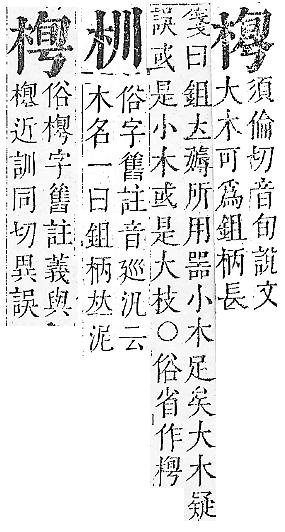 須倫切音旬說文
大木可爲鉏柄長
箋曰鉏去薅所用器小木足矣大木疑
誤或是小木或是大枝○俗省作
俗字舊註音巡汎云
木名一曰鉏柄𠀤泥
俗字舊註義與
近訓同切異誤